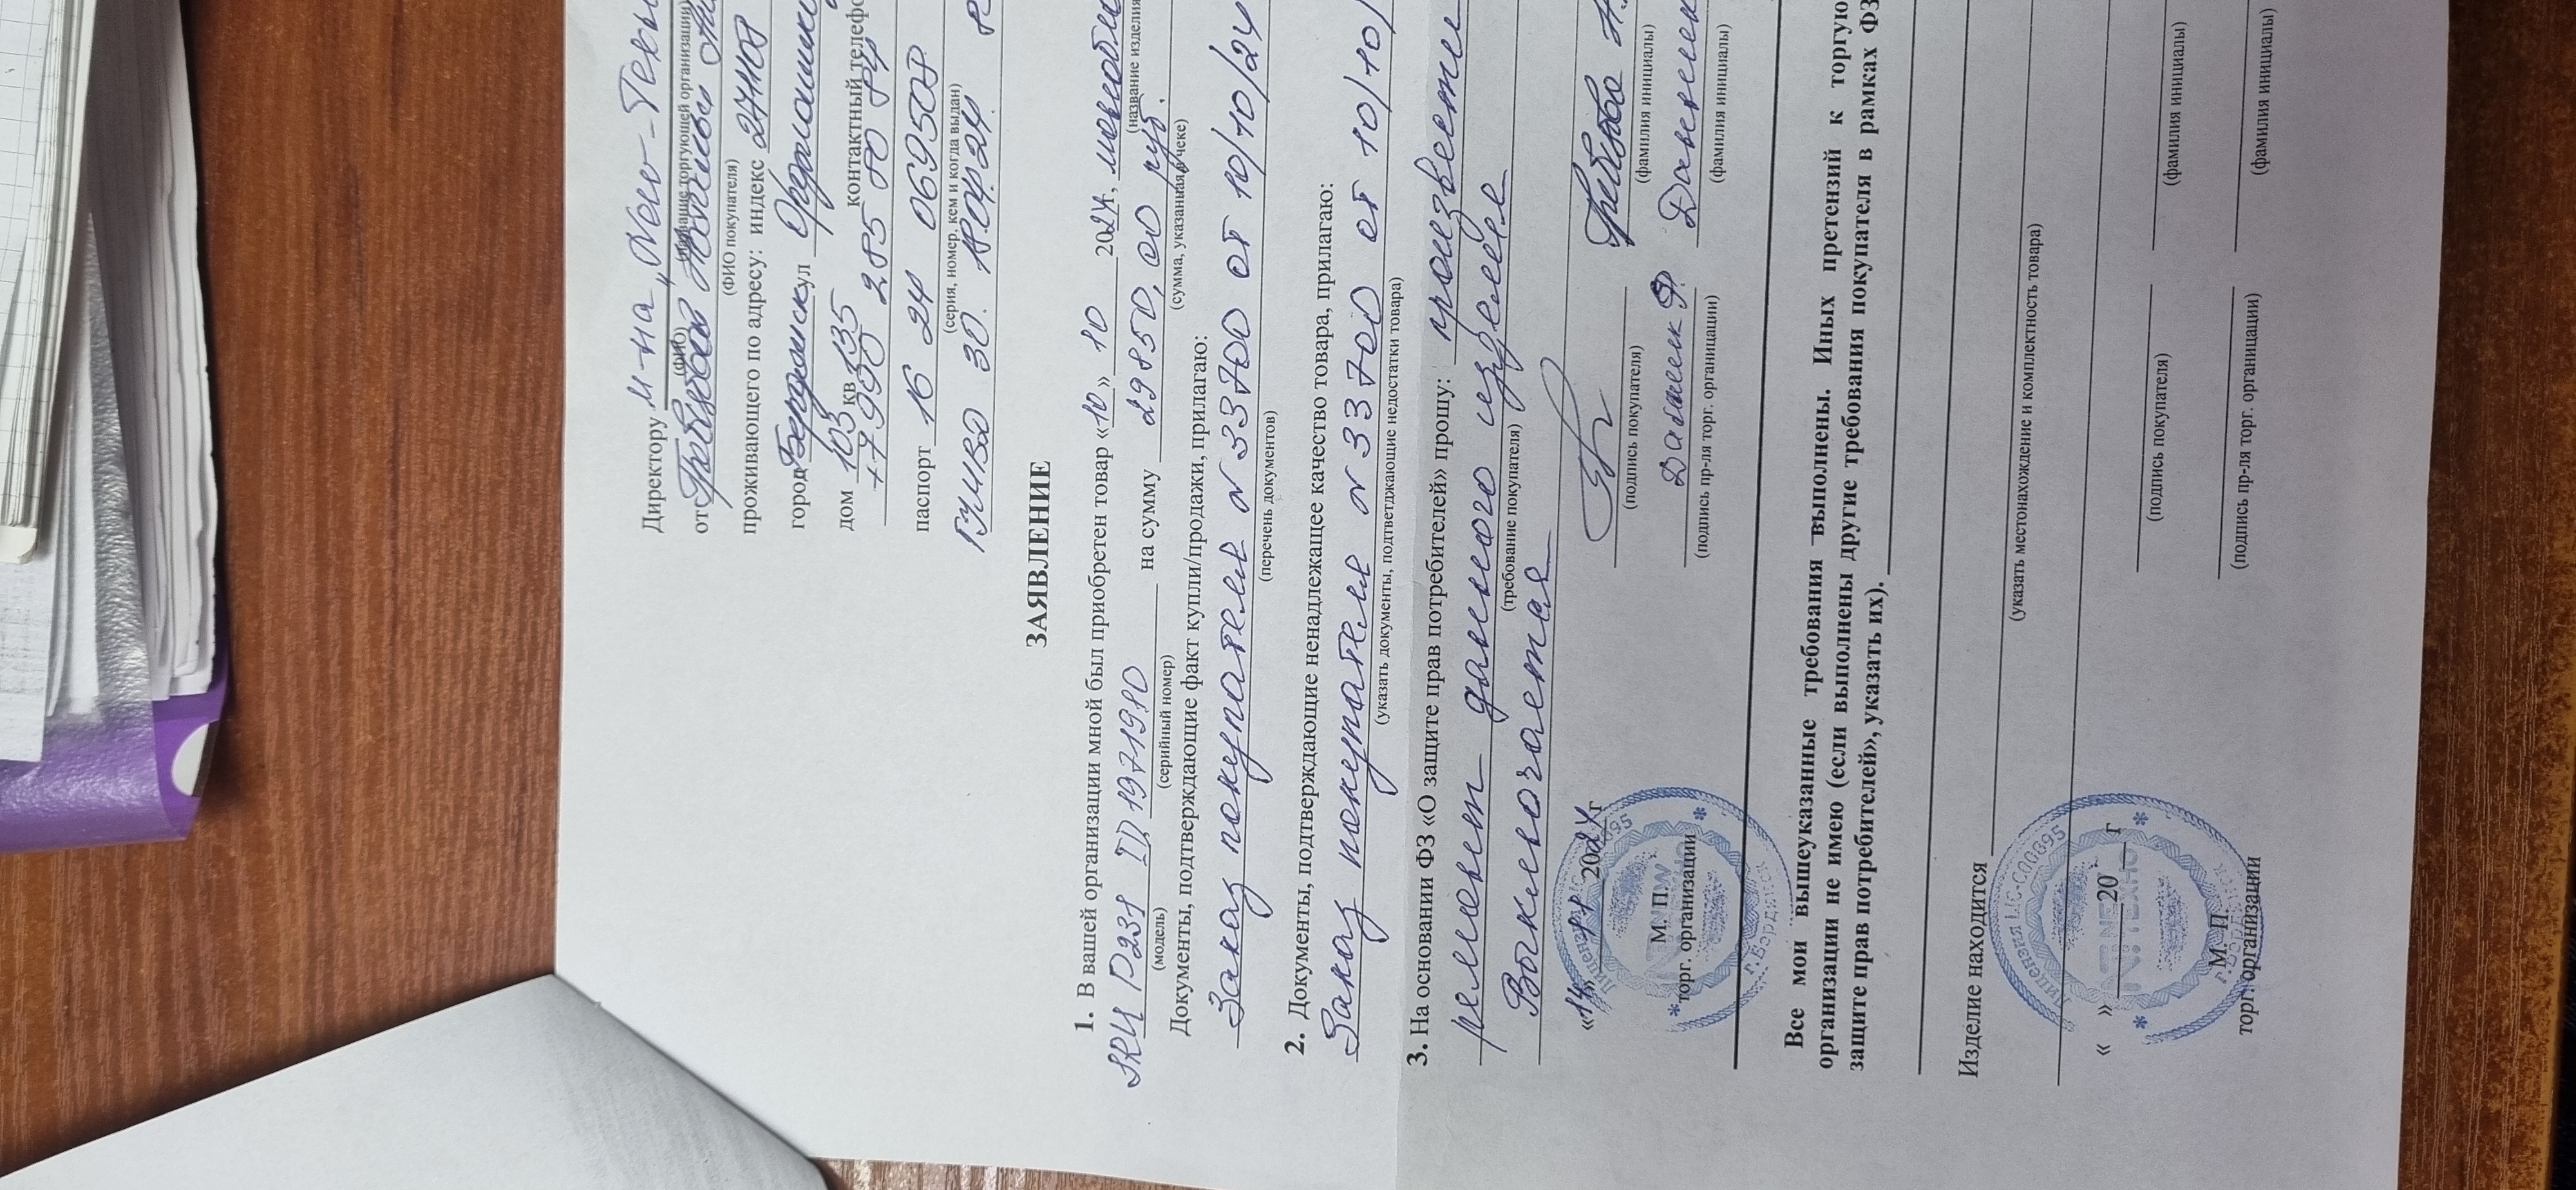 Директору м-на „Neo-Техн
(ФИО) (название торгующей организации)
от Грибовой
(ФИО покупателя)
проживающего по адресу: индекс 271108
город Бердянск ул Орджоники
дом 103 кв 135 контактный телефо
+7990 285 80 84
паспорт 16 24 069508
(серия, номер, кем и когда выдан)
ЗАЯВЛЕНИЕ
1. В вашей организации мной был приобретен товар «10» 10 2024,
(название изделия
SKY P231 ID, 1971990 на сумму 29850,00 руб.
(модель) (серийный номер) (сумма, указанная в чеке)
Документы, подтверждающие факт купли/продажи, прилагаю:
Заказ покупателя № 33700 от 10/10/24
(перечень документов)
2. Документы, подтверждающие ненадлежащее качество товара, прилагаю:
Заказ покупателя № 33700 от 10/10/
(указать документы, подтветджающие недостатки товара)
3. На основании ФЗ «О защите прав потребителей» прошу: произвести
ремонт данного изделия
(требование покупателя)
Выключается
«14» 11 2024г
(подпись покупателя) (фамилия инициалы)
М. П.
торг. организации
(подпись пр-ля торг. органицации) (фамилия инициалы)
Лицензия LIC-C00895
г.Бердянск
Все мои вышеуказанные требования выполнены. Иных претензий к торгую
организации не имею (если выполнены другие требования покупателя в рамках ФЗ
защите прав потребителей», указать их).
Изделие находится
(указать местонахождение и комплектность товара)
« » 20 г
(подпись покупателя) (фамилия инициалы)
М. П.
торг. организации
(подпись пр-ля торг. органицации) (фамилия инициалы)
Лицензия LIC-C00895
г.Бердянск